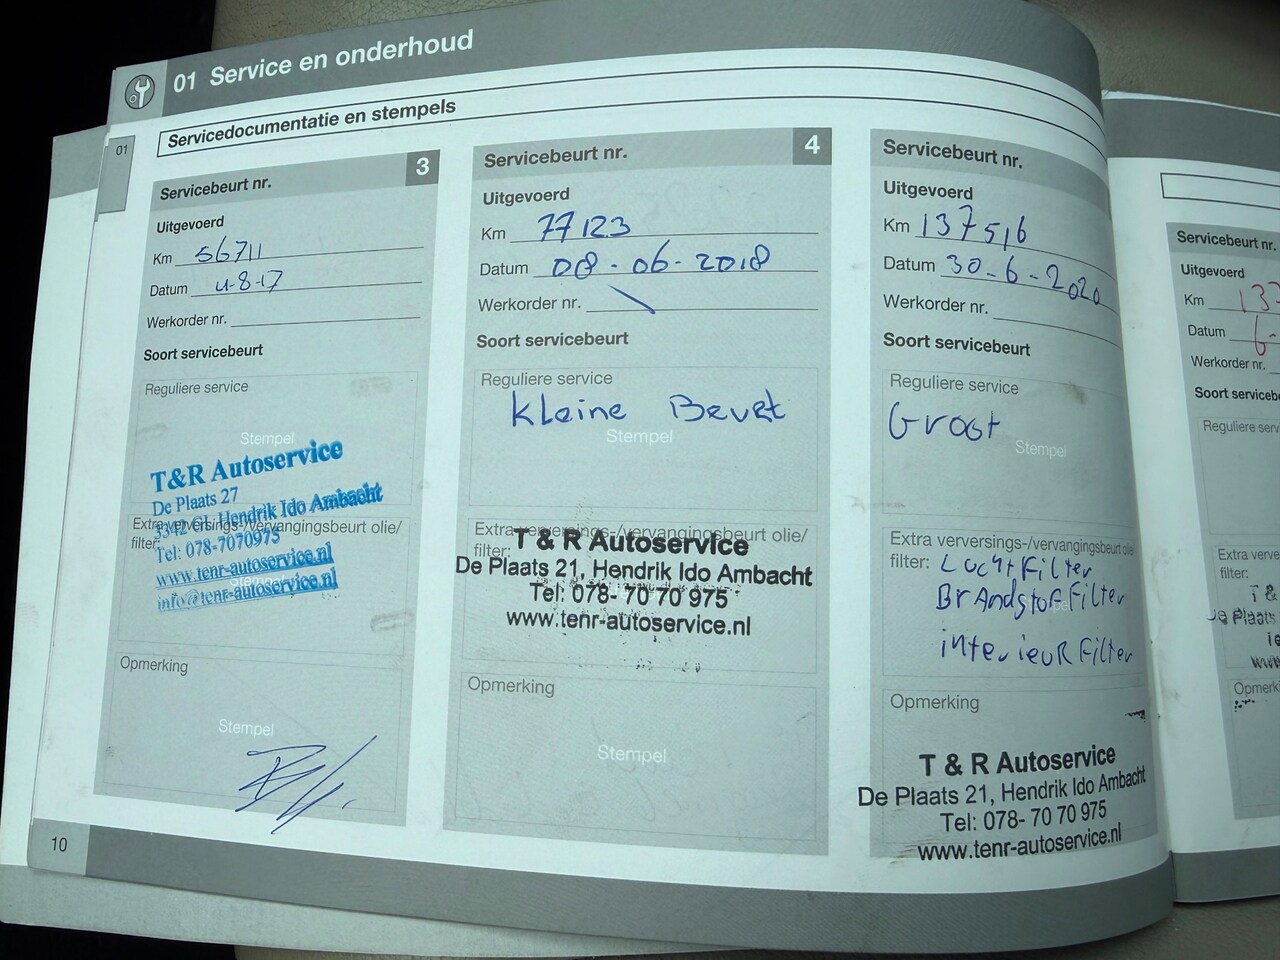 01 Service en onderhoud
Servicedocumentatie en stempels
01
Servicebeurt nr. 3
Uitgevoerd
Km 56711
Datum 4-8-17
Werkorder nr.
Soort servicebeurt
Reguliere service
Stempel
T&R Autoservice
De Plaats 27
3342 GL Hendrik Ido Ambacht
Extra verversings-/vervangingsbeurt olie/
filter:
Tel: 078-7070975
www.tenr-autoservice.nl
Stempel
info@tenr-autoservice.nl
Opmerking
Stempel
10
Servicebeurt nr. 4
Uitgevoerd
Km 77123
Datum 08-06-2018
Werkorder nr.
Soort servicebeurt
Reguliere service
Kleine Beurt
Stempel
Extra verversings-/vervangingsbeurt olie/
filter:
T & R Autoservice
De Plaats 21, Hendrik Ido Ambacht
Tel: 078- 70 70 975
www.tenr-autoservice.nl
Opmerking
Stempel
Servicebeurt nr.
Uitgevoerd
Km 137516
Datum 30-6-2020
Werkorder nr.
Soort servicebeurt
Reguliere service
Groot
Stempel
Extra verversings-/vervangingsbeurt olie
filter: Luchtfilter
BrAndstofFilter
interieuRFilter
Opmerking
T & R Autoservice
De Plaats 21, Hendrik Ido Ambacht
Tel: 078- 70 70 975
www.tenr-autoservice.nl
Servicebeurt nr.
Uitgevoerd
Km
Datum
Werkorder nr.
Soort
Reguliere
Extra
filter:
T &
Plaats